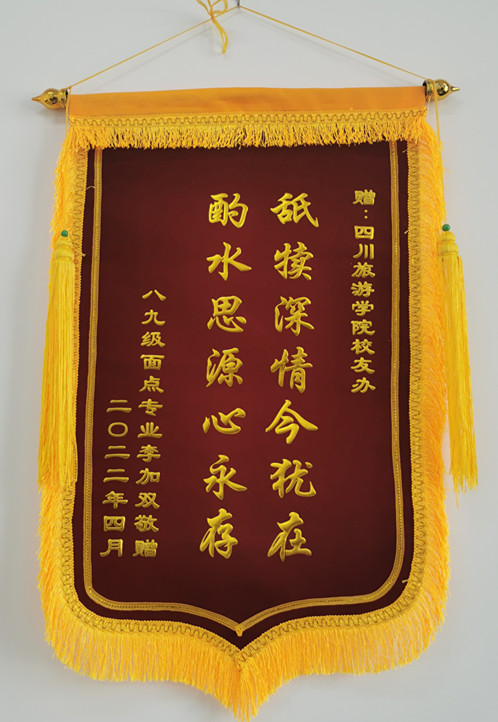 赠：四川旅游学院校友办
舐犊深情今犹在
酌水思源心永存
八九级面点专业李加双敬赠
二〇二二年四月